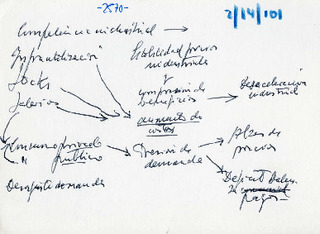 -2570-
2/14/101
Competencia industrial
Infrautilización
Estabilidad precios
industriales
y
compresión de
beneficios
Desaceleración
industrial
Stocks
Salarios
aumento de
costes
Consumo privado
" público
Presión de
demanda
Alza de
precios
Desajuste demanda
Déficit Balan.
pagos